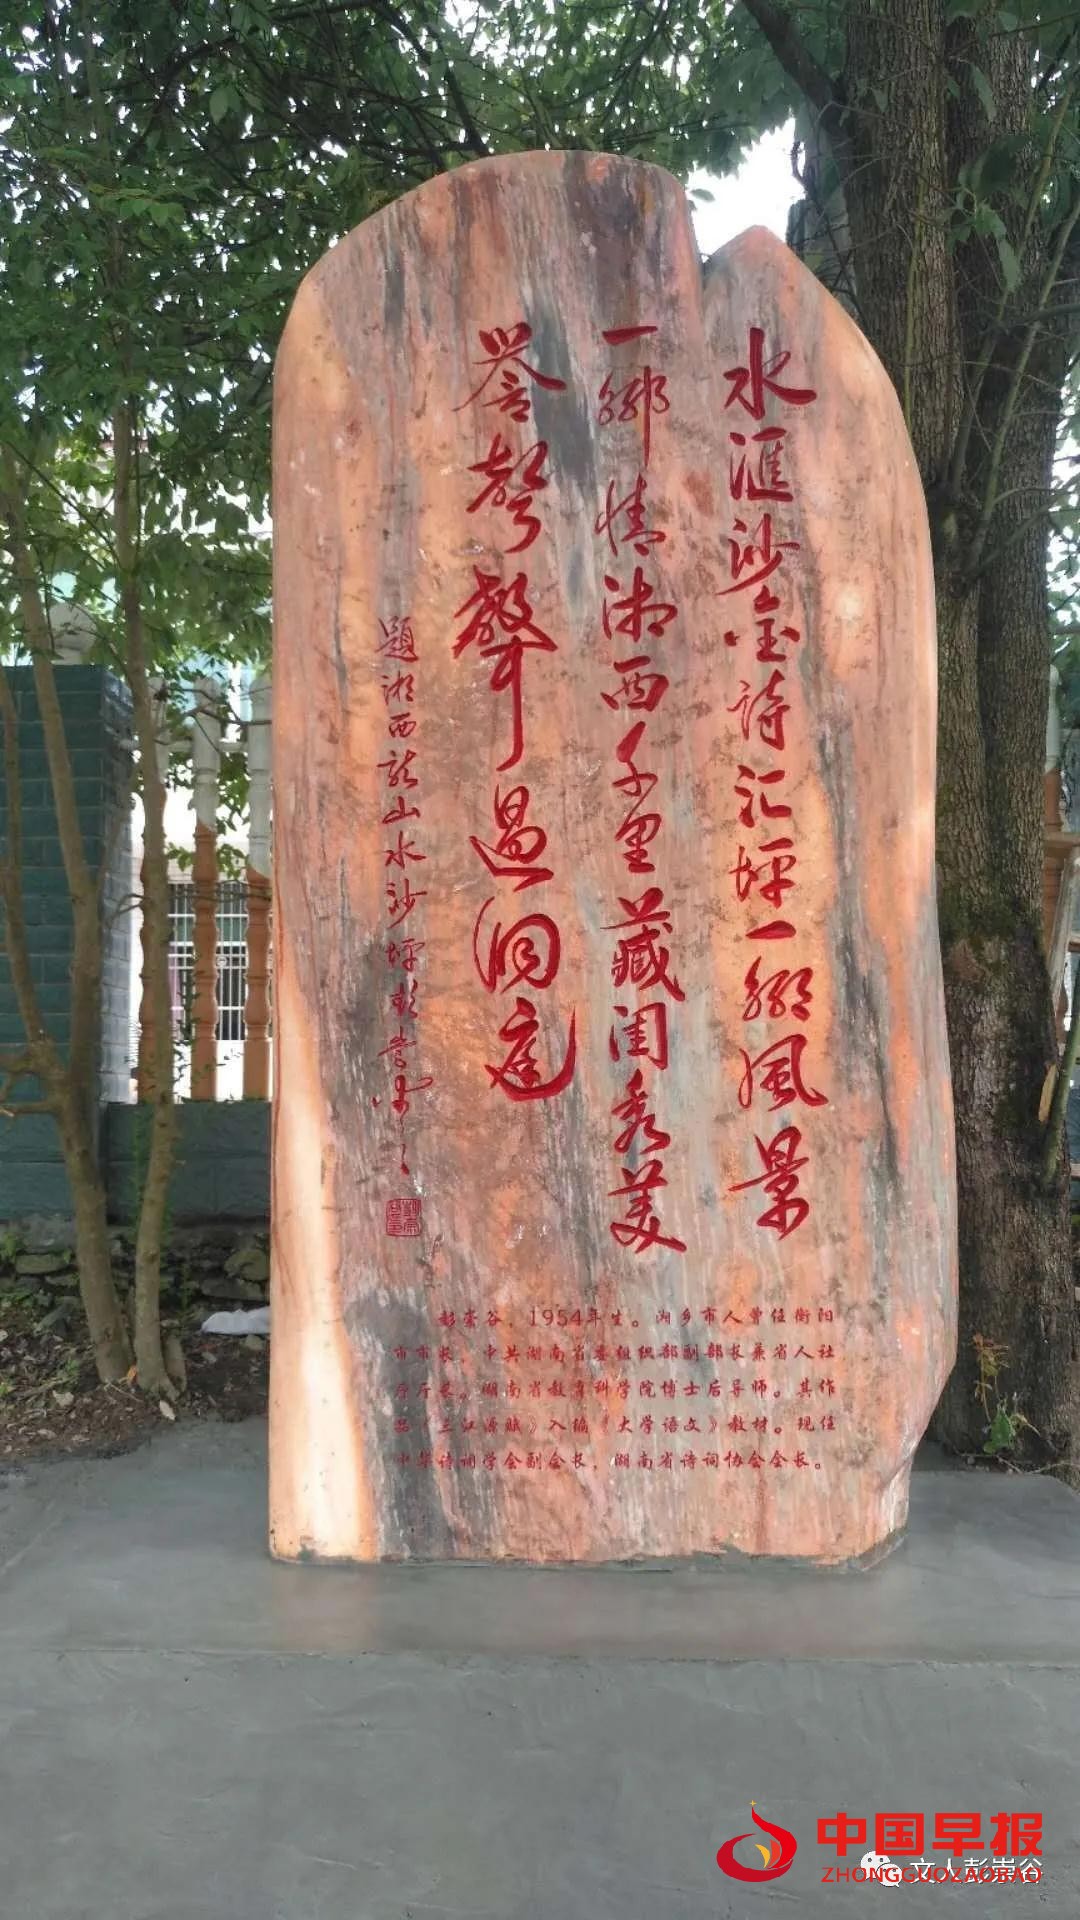 水滙沙金詩汇坪一鄉風景
一鄉情湘西千里藏閨秀美
誉聲聲過洞庭
題湘西龍山水沙坪彭崇谷
彭崇谷，1954年生。湘乡市人曾任衡阳
市市长，中共湖南省委组织部副部长兼省人社
厅厅长。湖南省教育科学院博士后导师。其作
品《三江源赋》入编《大学语文》教材。现任
中华诗词学会副会长，湖南省诗词协会会长。
中国早报
ZHONGGUOZAOBAO
文人彭崇谷